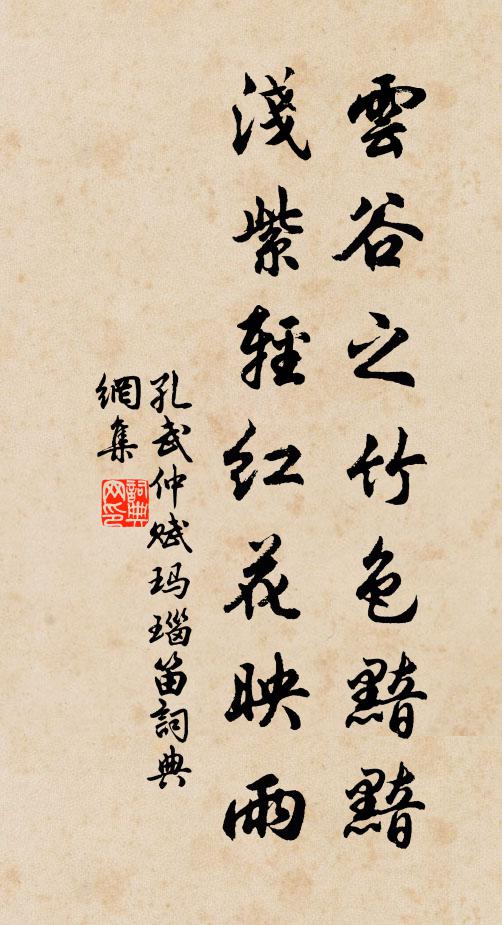 雲谷之竹色黯黯
淺紫輕紅花映雨
孔武仲賦玛瑙笛詞典
網集
詞典
网印